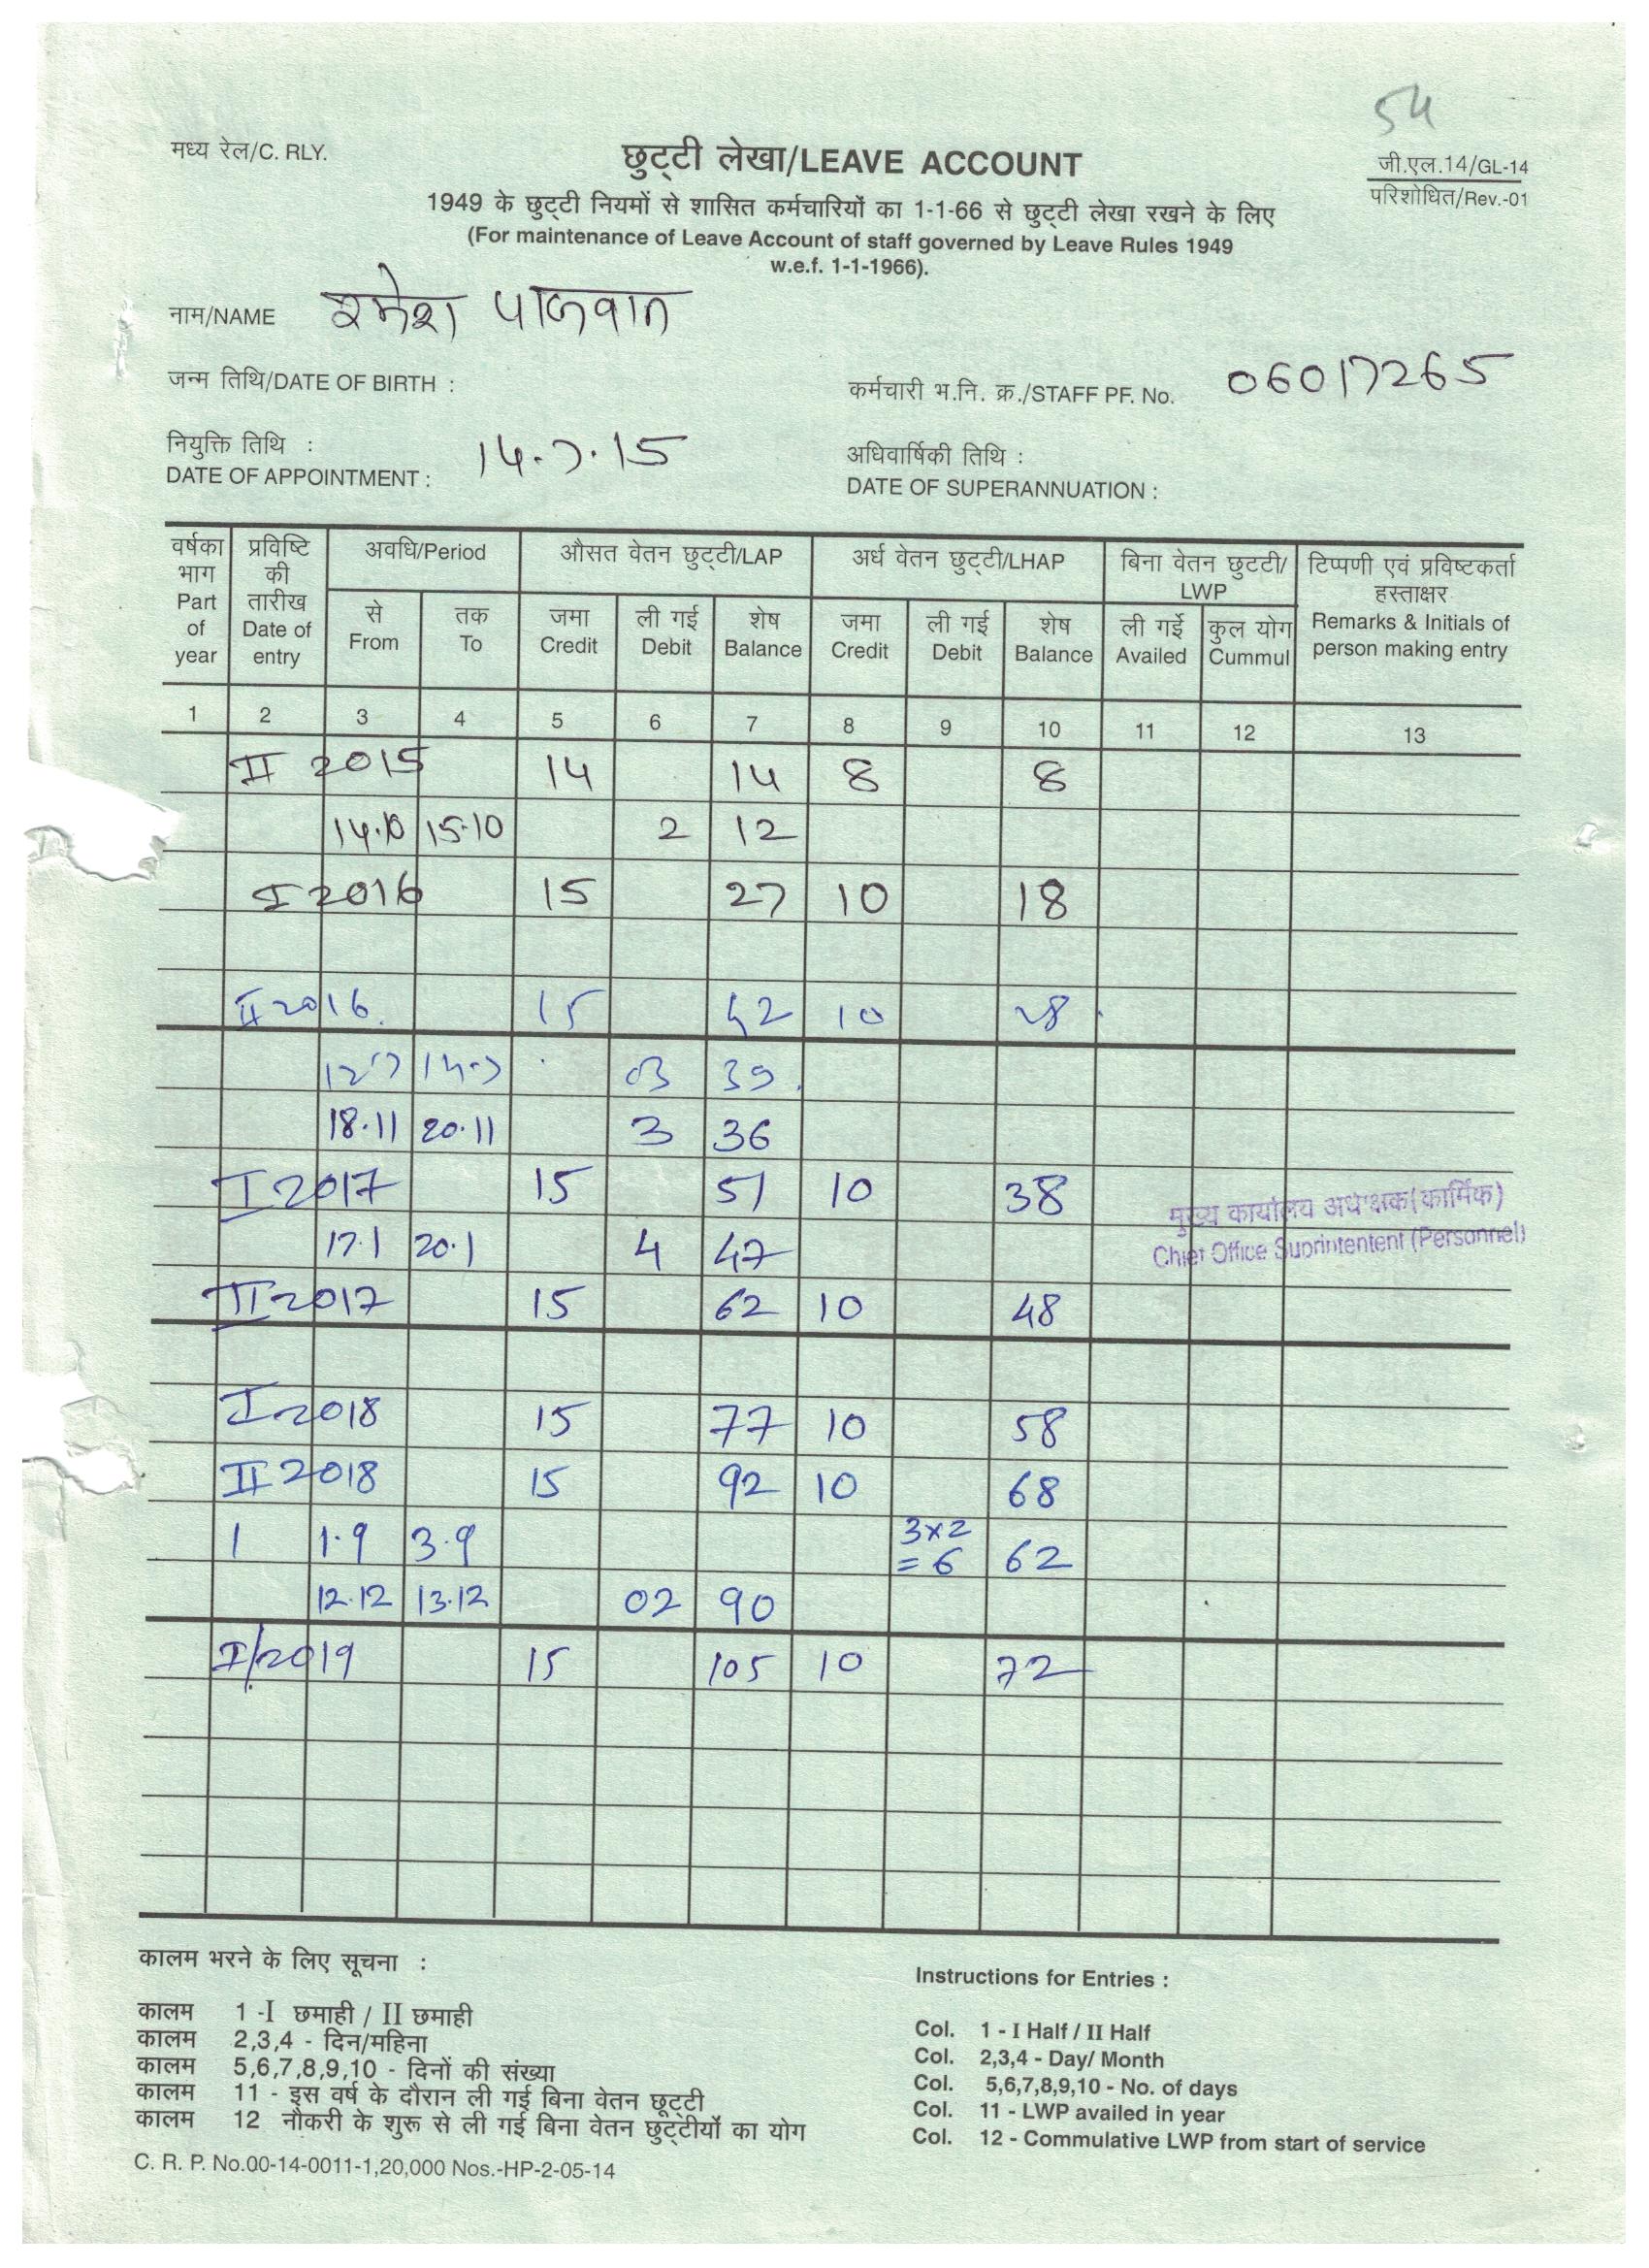 54
मध्य रेल/C. RLY.
छुट्टी लेखा/LEAVE ACCOUNT
जी.एल.14/GL-14
परिशोधित/Rev.-01
1949 के छुट्टी नियमों से शासित कर्मचारियों का 1-1-66 से छुट्टी लेखा रखने के लिए
(For maintenance of Leave Account of staff governed by Leave Rules 1949
w.e.f. 1-1-1966).
नाम/NAME रमेश पासवान
जन्म तिथि/DATE OF BIRTH :
कर्मचारी भ.नि. क्र./STAFF PF. No. 06017265
नियुक्ति तिथि :
DATE OF APPOINTMENT : 14.7.15
अधिवार्षिकी तिथि :
DATE OF SUPERANNUATION :
वर्षका भाग Part of year प्रविष्टि की तारीख Date of entry अवधि/Period औसत वेतन छुट्टी/LAP अर्ध वेतन छुट्टी/LHAP बिना वेतन छुटटी/ LWP टिप्पणी एवं प्रविष्टकर्ता हस्ताक्षर Remarks & Initials of person making entry
से From तक To जमा Credit ली गई Debit शेष Balance जमा Credit ली गई Debit शेष Balance ली गई Availed कुल योग Cummul
1 2 3 4 5 6 7 8 9 10 11 12 13
II 2015 14 14 8 8
14.10 15.10 2 12
I 2016 15 27 10 18
II 2016. 15 42 10 28
12.7 14.7 03 39
18.11 20.11 3 36
I 2017 15 51 10 38
मुख्य कार्यालय अधीक्षक(कार्मिक)
Chief Office Suprintentent (Personnel)
17.1 20.1 4 47
II 2017 15 62 10 48
I 2018 15 77 10 58
II 2018 15 92 10 68
1 1.9 3.9 3x2 = 6 62
12.12 13.12 02 90
I/2019 15 105 10 72
कालम भरने के लिए सूचना :
कालम 1 -I छमाही / II छमाही
कालम 2,3,4 - दिन/महिना
कालम 5,6,7,8,9,10 - दिनों की संख्या
कालम 11 - इस वर्ष के दौरान ली गई बिना वेतन छूट्टी
कालम 12 नौकरी के शुरू से ली गई बिना वेतन छुट्टीयों का योग
Instructions for Entries :
Col. 1 - I Half / II Half
Col. 2,3,4 - Day/ Month
Col. 5,6,7,8,9,10 - No. of days
Col. 11 - LWP availed in year
Col. 12 - Commulative LWP from start of service
C. R. P. No.00-14-0011-1,20,000 Nos.-HP-2-05-14